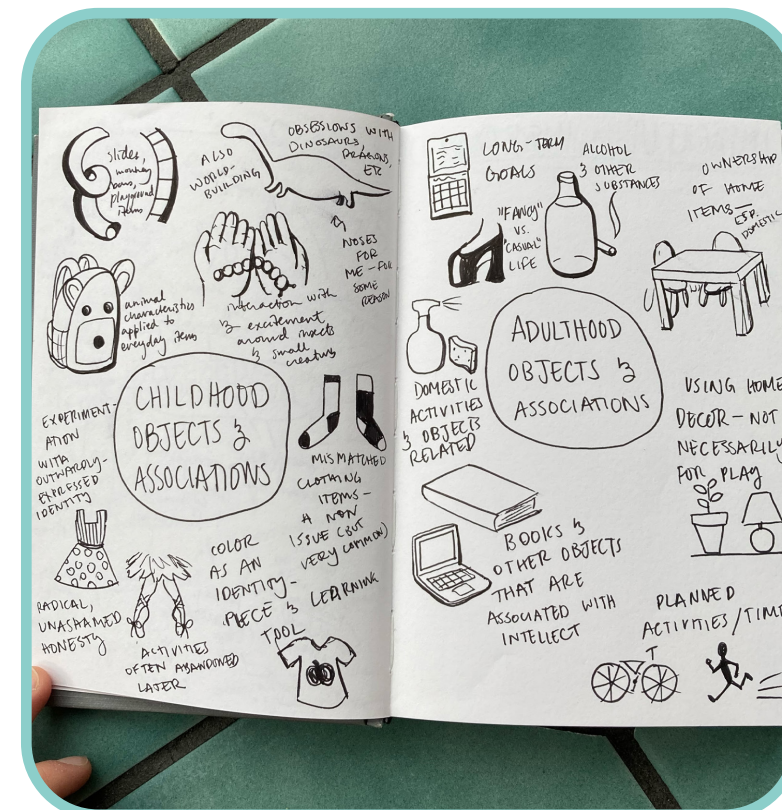 slides,
monkey
bars,
playground
items
ALSO
WORLD-
BUILDING
OBSESSIONS WITH
DINOSAURS,
DRAGONS,
ETC
NOSES
FOR
ME-FOR
SOME
REASON
animal
characteristics
applied to
everyday items
interaction with
& excitement
around insects
& small
creatures
CHILDHOOD
OBJECTS &
ASSOCIATIONS
EXPERIMENT-
ATION
WITH
OUTWARDLY-
EXPRESSED
IDENTITY
MISMATCHED
CLOTHING
ITEMS-
A NON
ISSUE (BUT
VERY COMMON)
RADICAL,
UNASHAMED
HONESTY
ACTIVITIES
OFTEN ABANDONED
LATER
COLOR
AS AN
IDENTITY-
PIECE & LEARNING
TOOL
LONG-TERM
GOALS
ALCOHOL
& OTHER
SUBSTANCES
"FANCY"
VS.
"CASUAL"
LIFE
OWNERSHIP
OF HOME
ITEMS-
ESP.
DOMESTIC
ADULTHOOD
OBJECTS &
ASSOCIATIONS
DOMESTIC
ACTIVITIES
& OBJECTS
RELATED
USING HOME
DECOR-NOT
NECESSARILY
FOR PLAY
BOOKS &
OTHER OBJECTS
THAT ARE
ASSOCIATED WITH
INTELLECT
PLANNED
ACTIVITIES/TIM